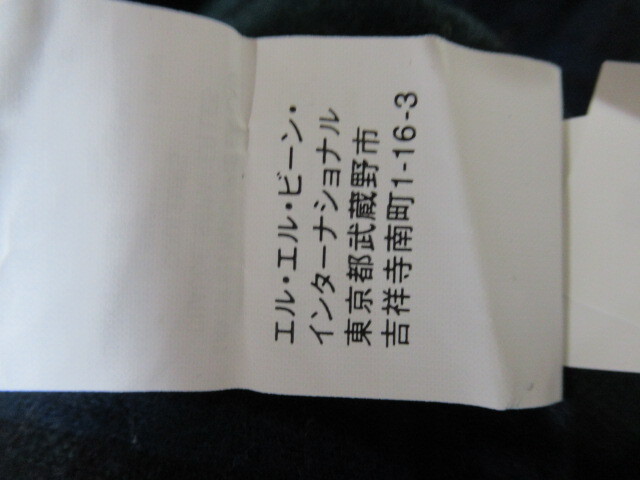 エル・エル・ビーン・
インターナショナル
東京都武蔵野市
吉祥寺南町1-16-3